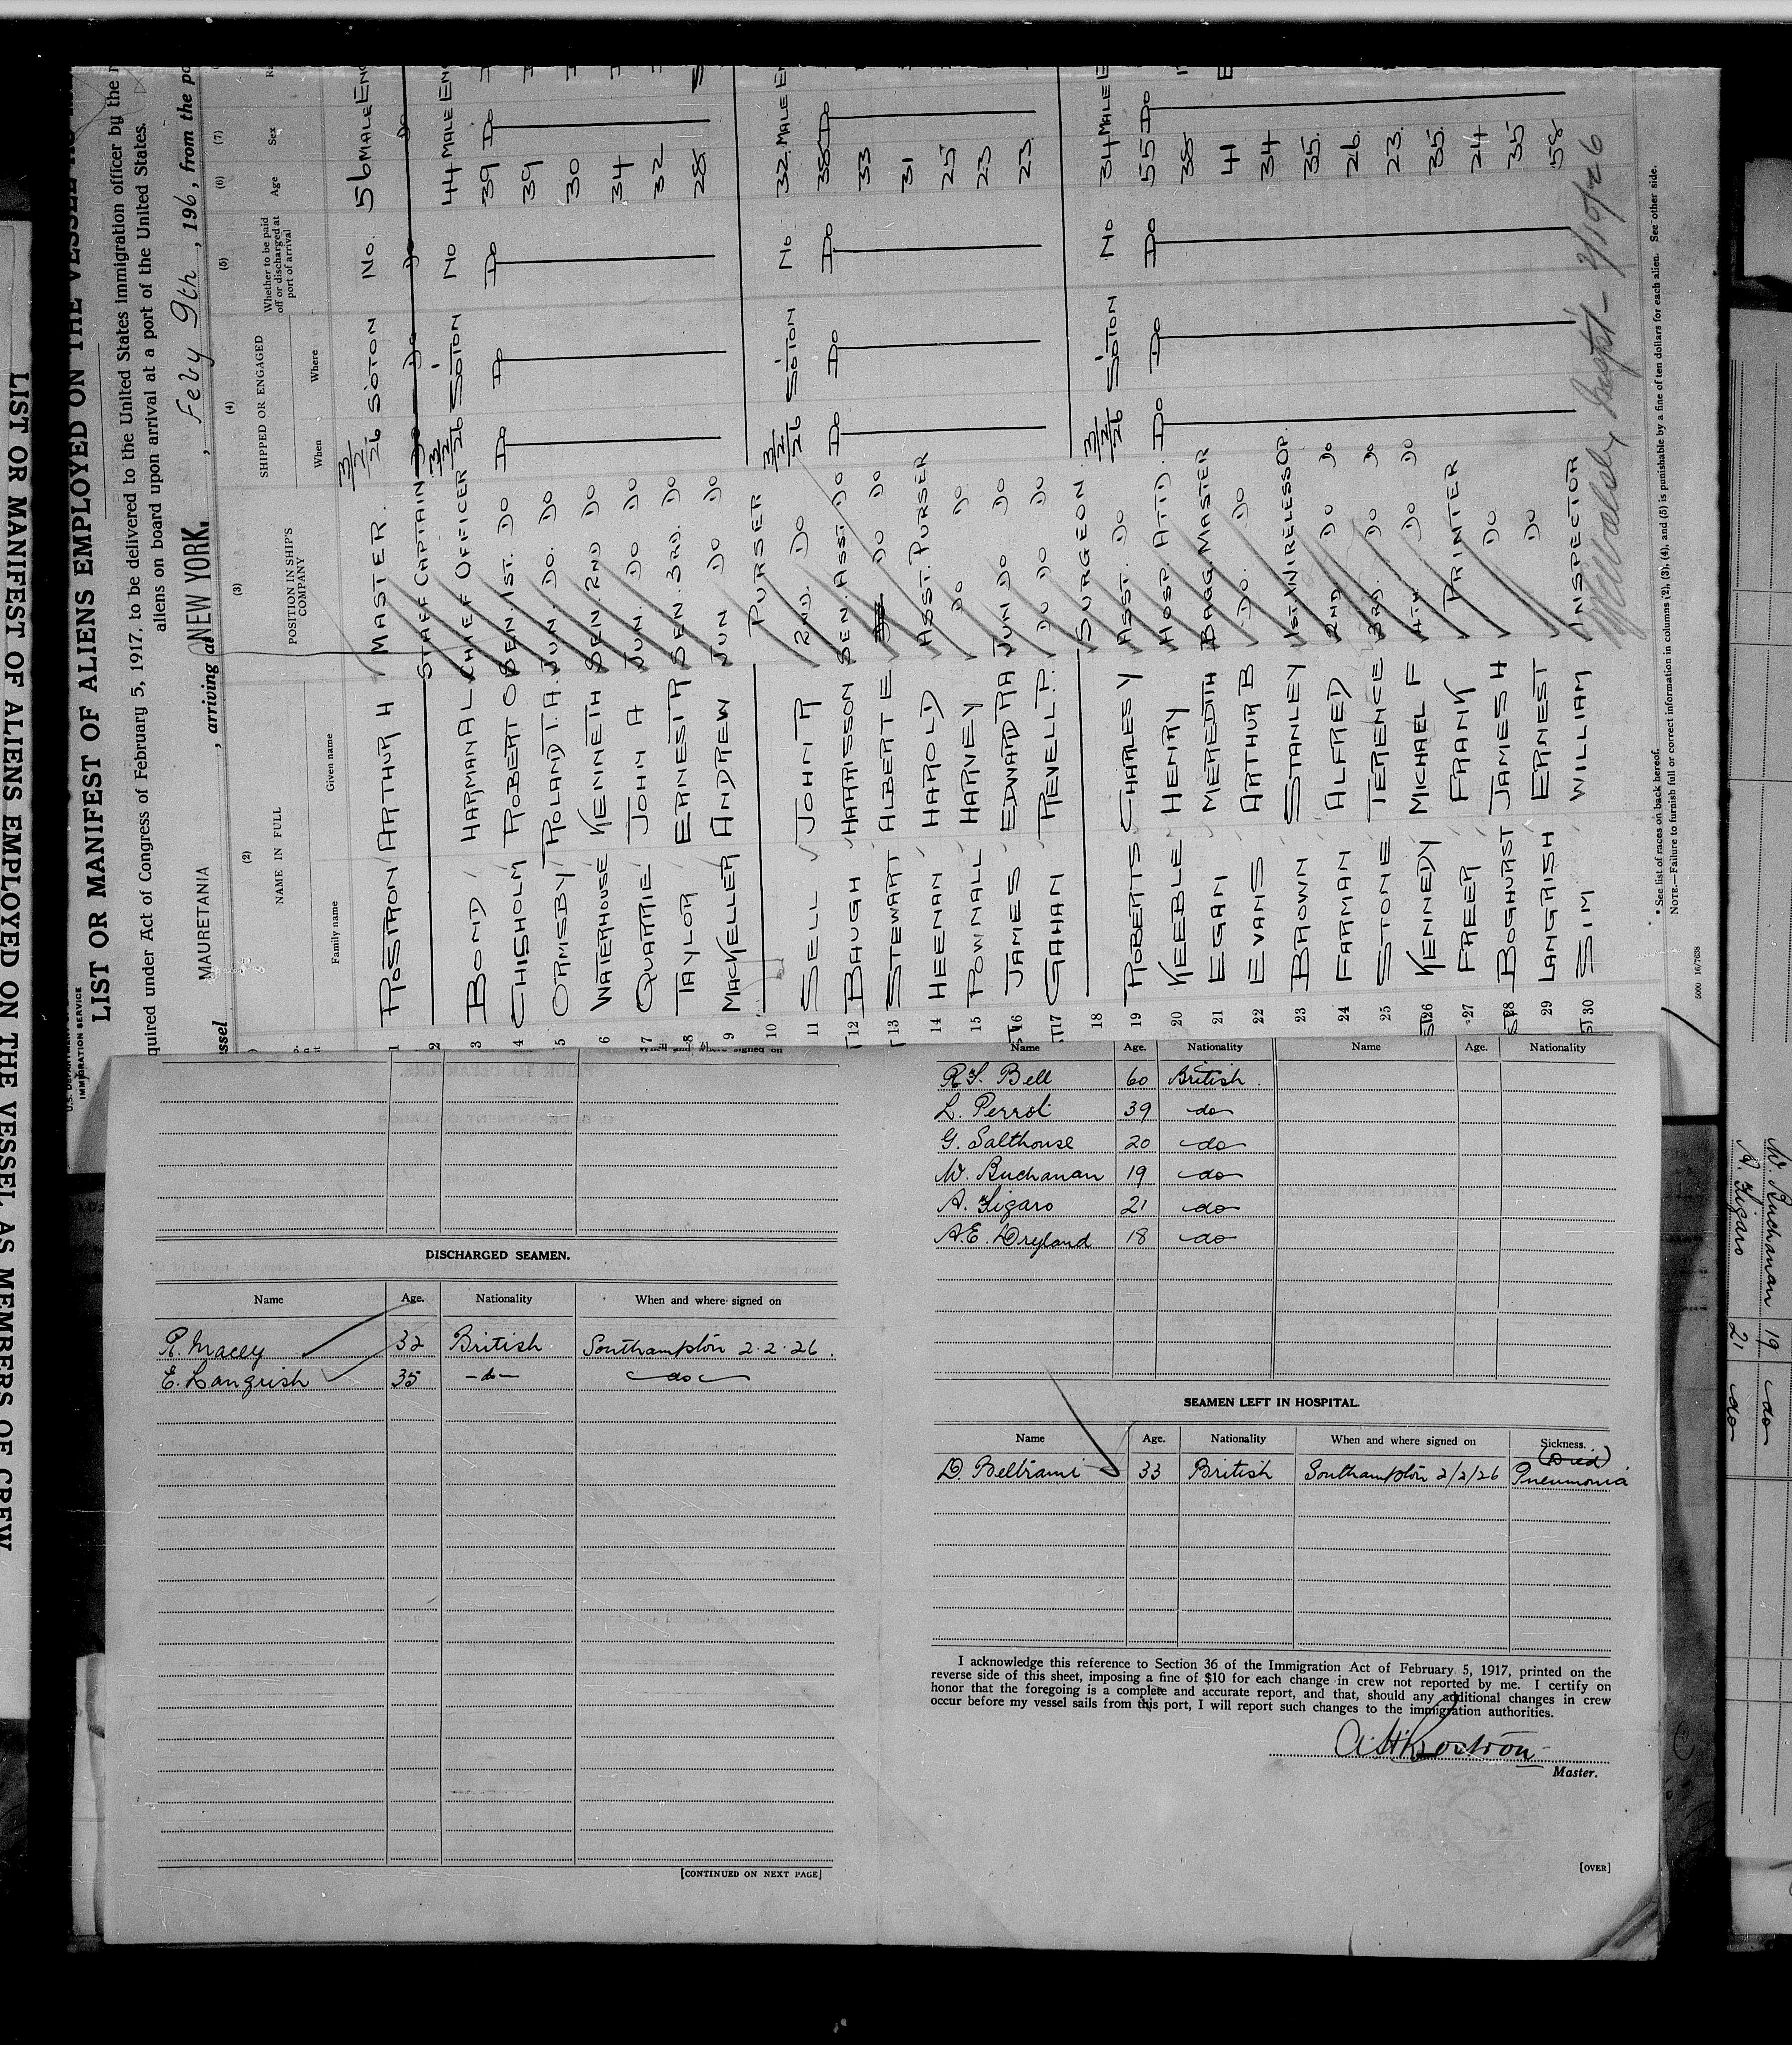 LIST OR MANIFEST OF ALIENS EMPLOYED ON THE VESSEL AS MEMBERS OF CREW
U.S. DEPARTMENT
IMMIGRATION SERVICE
LIST OR MANIFEST OF ALIENS EMPLOYED ON THE VESSEL AS
quired under Act of Congress of February 5, 1917, to be delivered to the United States immigration officer by the
aliens on board upon arrival at a port of the United States.
ssel MAURETANIA, arriving at NEW YORK., Feby 9th, 196, from the po
(2) (3) (4) (5) (6) (7)
NAME IN FULL POSITION IN SHIP'S COMPANY SHIPPED OR ENGAGED Whether to be paid off or discharged at port of arrival Age Sex
Family name Given name When Where
1 ROSTRON ARTHUR H MASTER. 3/2/26 SOTON NO. 56 MALE ENG
2 STAFF CAPTAIN DO DO DO DO
3 BOND HARMAN A L CHIEF OFFICER 3/2/26 SOTON NO 44 MALE ENG
4 CHISHOLM ROBERT O SEN. 1ST. DO DO DO DO 39 DO
5 ORMSBY ROLAND T.A. JUN. DO. DO 39
6 WATERHOUSE KENNETH SEN. 2ND DO 30
7 QUARRIE JOHN A JUN. DO DO 34
8 TAYLOR ERNEST R SEN. 3RD. DO 32
9 MACKELLER ANDREW JUN DO DO 28
10 PURSER
11 SELL JOHN R 2ND. DO 3/2/26 SOTON NO 32 MALE EN
12 BAUGH HARRISSON SEN. ASST DO DO DO DO 38 DO
13 STEWART ALBERT E DO DO 33
14 HEENAN HAROLD ASST. PURSER 31
15 POWNALL HARVEY DO DO 25
16 JAMES EDWARD R A JUN DO DO 23
17 GAHAN REVELL P. DO DO DO 23
18 SURGEON.
19 ROBERTS CHARLES Y ASST. DO 3/2/26 SOTON NO 34 MALE E
20 KEEBLE HENRY HOSP. ATTD. DO DO DO 55 DO
21 EGAN MEREDITH BAGG. MASTER 38
22 EVANS ARTHUR B DO. DO 41
23 BROWN STANLEY 1ST. WIRELESS OP. 34
24 FARMAN ALFRED 2ND DO DO 35
25 STONE TERENCE 3RD. DO DO 26
26 KENNEDY MICHAEL F 4TH DO DO 23
27 FREER FRANK PRINTER 35
28 BOGHURST JAMES H DO 24
29 LANGRISH ERNEST DO 35
30 SIM WILLIAM INSPECTOR 58
Inspt- 2/10/26
* See list of races on back hereof.
NOTE.—Failure to furnish full or correct information in columns (2), (3), (4), and (5) is punishable by a fine of ten dollars for each alien. See other side.
When and where signed on
DISCHARGED SEAMEN.
Name Age. Nationality When and where signed on
R. Macey 32 British Southampton 2.2.26.
E. Langrish 35 -do- do
[CONTINUED ON NEXT PAGE]
Name Age. Nationality Name Age. Nationality
R.T. Bell 60 British.
L. Perrot 39 do
G. Salthouse 20 do
W. Buchanan 19 do
A. Figaro 21 do
A.E. Dryland 18 do
SEAMEN LEFT IN HOSPITAL.
Name Age. Nationality When and where signed on Sickness.
(Died)
D. Beltrami 33 British Southampton 2/2/26 Pneumonia
I acknowledge this reference to Section 36 of the Immigration Act of February 5, 1917, printed on the
reverse side of this sheet, imposing a fine of $10 for each change in crew not reported by me. I certify on
honor that the foregoing is a complete and accurate report, and that, should any additional changes in crew
occur before my vessel sails from this port, I will report such changes to the immigration authorities.
A H Rostron
Master.
[OVER]
W. Buchanan 19 do
A. Figaro 21 do